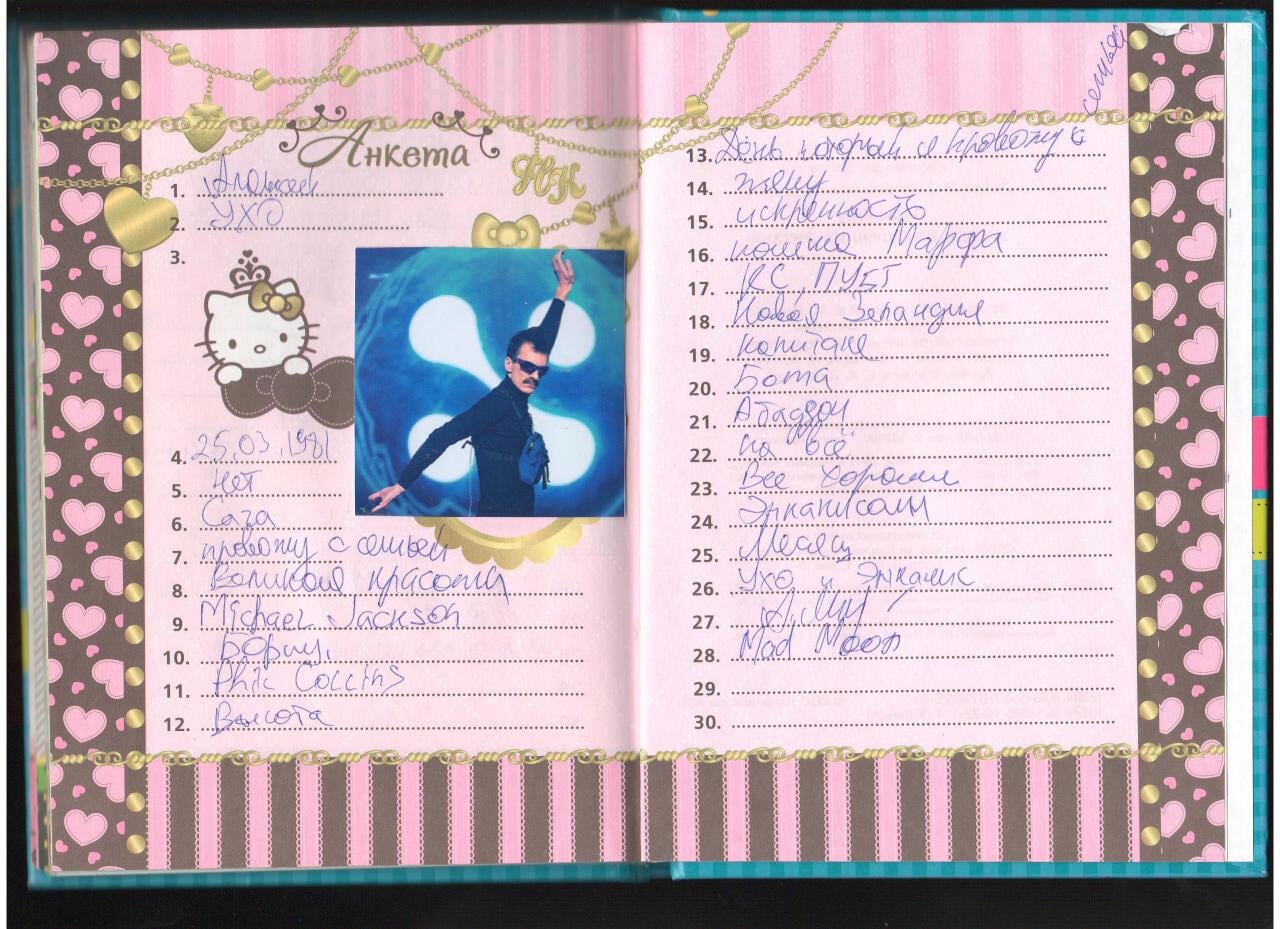 Анкета
НК
1. Алексей
2. УХО
3.
4. 25.03.1981
5. нет
6. Сага
7. провожу с семьей
8. Великая красота
9. Michael Jackson
10. Борщ.
11. Phil Collins
12. Высота
13. День который я провожу с
семьей
14.
15. искренность
16. кошка Марфа
17. КС, ПУБГ
18. Новая Зеландия
19. капитане
20.
21. Абаддон
22. на всё
23. Все хорошие
24.
25. Месяц
26. Ухо и Энканис
27.
28. Mad Moon
29.
30.